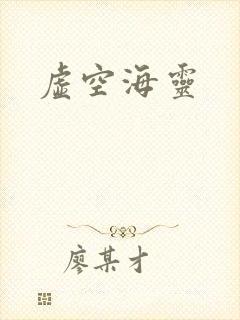 虛空海靈
廖某才